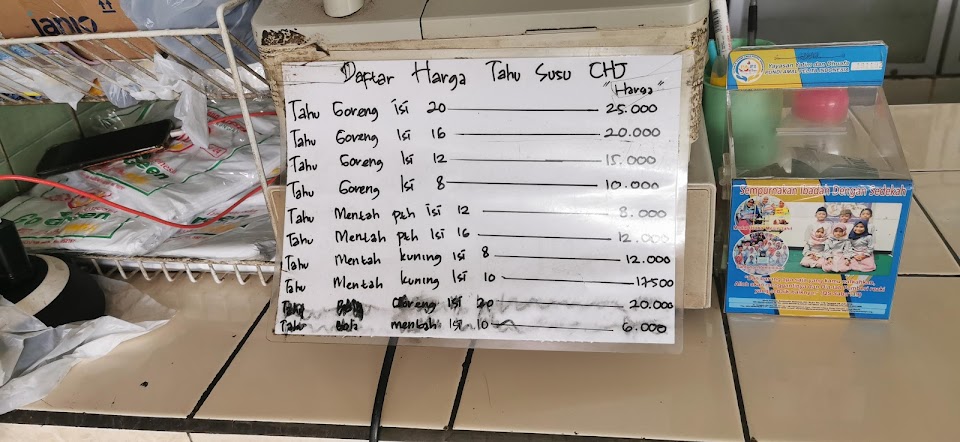 Daftar Harga Tahu Susu CHJ
"Harga"
Tahu Goreng isi 20 25.000
Tahu Goreng Isi 16 20.000
Tahu Goreng Isi 12 15.000
Tahu Goreng Isi 8 10.000
Tahu Mentah pth isi 12 8.000
Tahu Mentah pth Isi 16 12.000
Tahu Mentah kuning Isi 8 12.000
Tahu Mentah kuning Isi 10 17500
Goreng Isi 20 20.000
Tahu mentah Isi 10 6.000
Yayasan Yatim dan Dhuafa
Sempurnakan Ibadah Dengan Sedekah